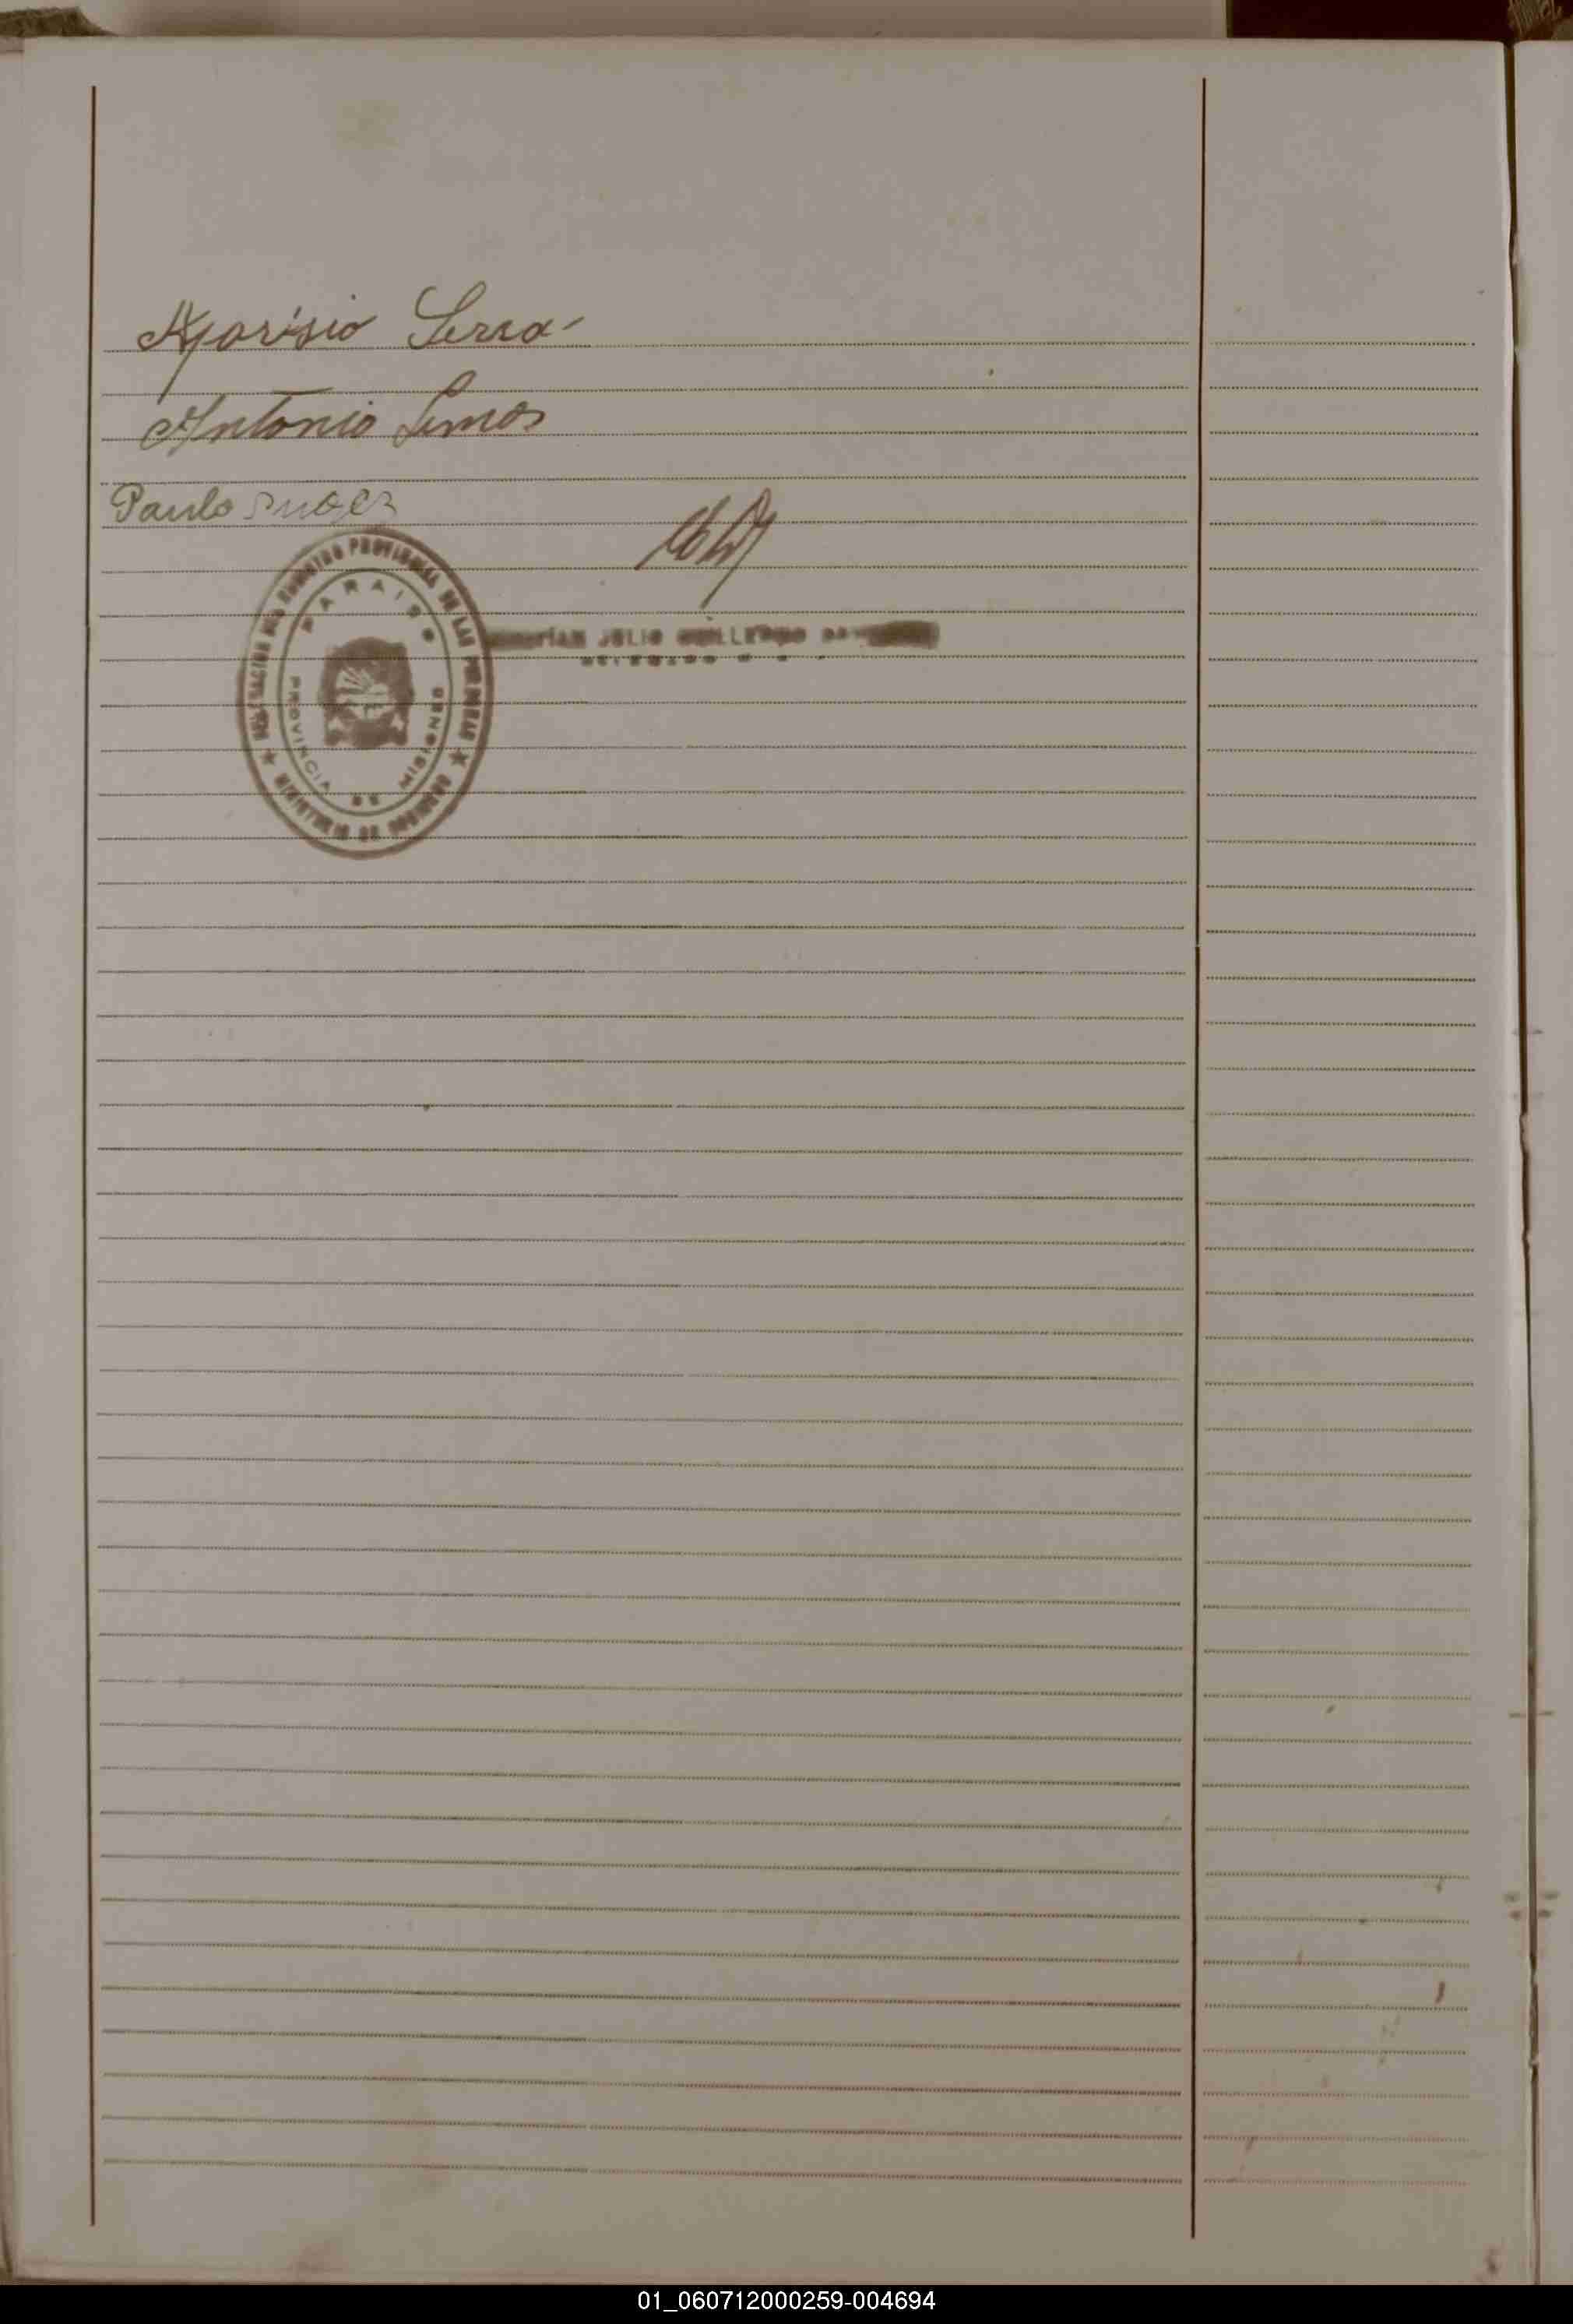 Aparisio Serra
Antonio Lemos
Paulo
DELEGACION DEL REGISTRO PROVINCIAL DE LAS PERSONAS
PARAISO
PROVINCIA DE MISIONES
★ MINISTERIO DE GOBIERNO ★
JULIO GUILLERMO
01_060712000259-004694